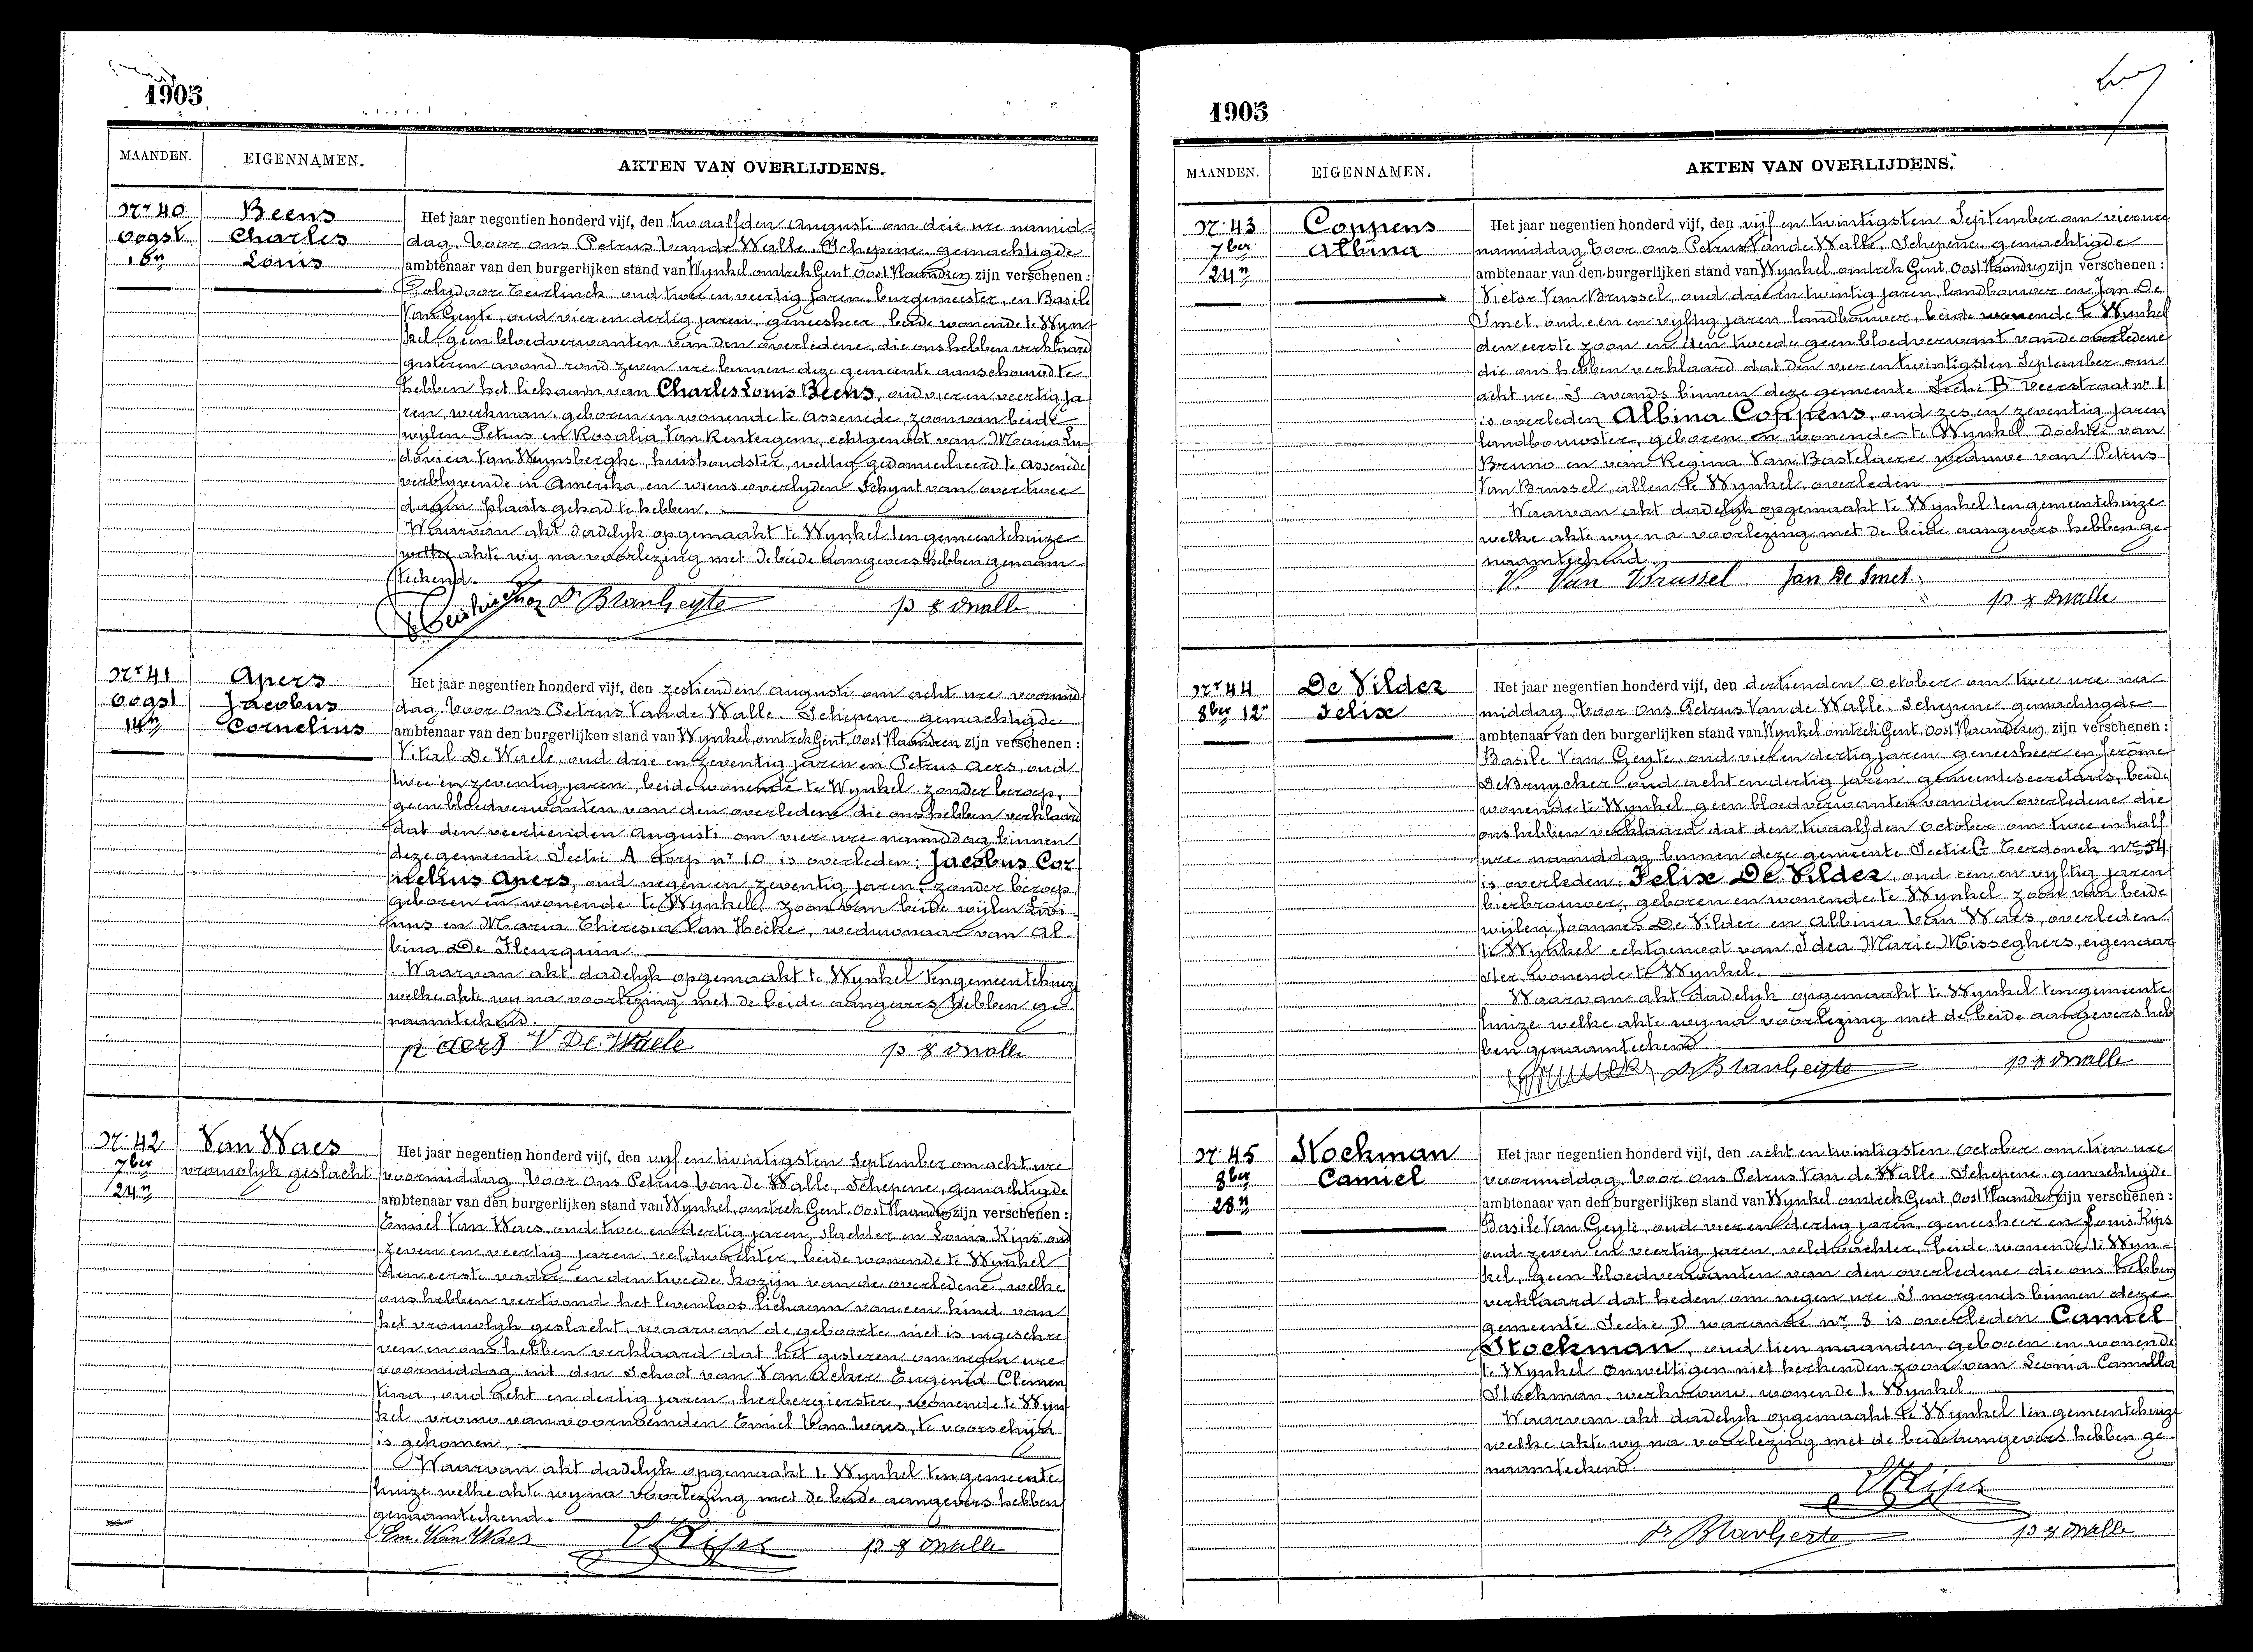 1905
MAANDEN.
EIGENNAMEN.
AKTEN VAN OVERLIJDENS.
Nr 40
Oogst
Beens
Charles
Louis
Het jaar negentien honderd vijf, den twaalfden Augusti om drie ure namid-
dag, Voor ons Petrus Van de Walle, Schepene gemachtigde
ambtenaar van den burgerlijken stand van Wynkel omtrek Gent, Oost Vlaandren zijn verschenen :
Polydoor Teirlinck oud twee en veertig jaren, burgemeester, en Basile
Van Geyte, oud vier en dertig jaren, geneesheer, beide wonende te Wyn-
kel, geen bloedverwanten van den overledene, die ons hebben verklaard
gisteren avond rond zeven ure binnen deze gemeente aanschouwd te
hebben het lichaam van Charles Louis Beens, oud vier en veertig ja-
ren, werkman, geboren en wonende te Assenede, zoon van beide
wijlen Petrus en Rosalia Van Rentergem, echtgenoot van Maria Lu-
dovica Van Wynsberghe, huishoudster, wettig gedomicilieerd te Assenede
verblyvende in Amerika en wiens overlyden schynt van over twee
dagen plaats gehad te hebben.
Waarvan akt dadelyk opgemaakt te Wynkel ten gemeentehuize
welke akte wy na voorlezing met de beide aangevers hebben genaam-
teekend.
Dr B VanGeyte
p v d Walle
Nr 41
Oogst
14n
Apers
Jacobus
Cornelius
Het jaar negentien honderd vijf, den zestienden Augusti om acht ure voormid
dag, Voor ons Petrus Van de Walle, Schepene gemachtigde
ambtenaar van den burgerlijken stand van Wynkel, omtrek Gent, Oost Vlaandren zijn verschenen :
Vitial De Waele, oud drie en zeventig jaren en Petrus Aers, oud
twee en zeventig jaren, beide wonende te Wynkel, zonder beroep,
geen bloedverwanten van den overledene die ons hebben verklaard
dat den veertienden Augusti om vier ure namiddag binnen
deze gemeente Sectie A dorp nr 10 is overleden: Jacobus Cor
nelius Apers, oud negen en zeventig jaren, zonder beroep
geboren en wonende te Wynkel, zoon van beide wijlen Livi
nus en Maria Theresia Van Hecke, weduwnaar van Al-
bina De Fleurquin.
Waarvan akt dadelyk opgemaakt te Wynkel ten gemeentehuize
welke akte wy na voorlezing met de beide aangevers hebben ge-
naamteekend.
p aers V De Waele
p v d Walle
Nr 42
7ber
24n
Van Waes
vrouwlyk geslacht
Het jaar negentien honderd vijf, den vyf en twintigsten September om acht ure
voormiddag, Voor ons Petrus Van de Walle, Schepene, gemachtigde
ambtenaar van den burgerlijken stand van Wynkel, omtrek Gent, Oost Vlaandren zijn verschenen :
Emiel Van Waes, oud twee en dertig jaren, slachter en Louis Kips oud
zeven en veertig jaren, veldwachter, beide wonende te Wynkel
den eerste vader en den tweede kozijn van de overledene, welke
ons hebben vertoond het levenloos lichaam van een kind van
het vrouwlyk geslacht, waarvan de geboorte niet is ingeschre
ven en ons hebben verklaard dat het gisteren om negen ure
voormiddag uit den schoot van Van Acker Eugenid Clemen
tina, oud acht en dertig jaren, herbergierster, wonende te Wyn
kel, vrouw van voornoemden Emiel Van Waes, te voorschijn
is gekomen.
Waarvan akt dadelyk opgemaakt te Wynkel ten gemeente
huize welke akte wy na voorlezing met de beide aangevers hebben
genaamteekend.
Em. Van Waes
L Kips
p v d Walle
1905
MAANDEN.
EIGENNAMEN.
AKTEN VAN OVERLIJDENS.
Nr 43
7ber
24n
Coppens
Albina
Het jaar negentien honderd vijf, den vijf en twintigsten September om vier ure
namiddag Voor ons Petrus Van de Walle, Schepene, gemachtigde
ambtenaar van den burgerlijken stand van Wynkel, omtrek Gent, Oost Vlaandren zijn verschenen :
Victor Van Brussel, oud drie en twintig jaren, landbouwer en Jan De
Smet, oud een en vyftig jaren landbouwer, beide wonende te Wynkel
den eerste zoon en den tweede geen bloedverwant van de overledene
die ons hebben verklaard dat den vier en twintigsten September om
acht ure S avonds binnen deze gemeente Sectie B Veerstraat nr 1
is overleden Albina Coppens, oud zes en zeventig jaren
landbouwster, geboren en wonende te Wynkel, dochter van
Bruno en van Regina Van Bastelaere weduwe van Petrus
Van Brussel, allen te Wynkel, overleden
Waarvan akt dadelyk opgemaakt te Wynkel ten gemeentehuize
welke akte wy na voorlezing met de beide aangevers hebben ge-
naamteekend.
V. Van Brussel Jan De Smet
p v d Walle
Nr 44
8ber 12n
De Vilder
Felix
Het jaar negentien honderd vijf, den dertienden October om twee ure na
middag, Voor ons Petrus Van de Walle, Schepene, gemachtigde
ambtenaar van den burgerlijken stand van Wynkel omtrek Gent, Oost Vlaandren zijn verschenen :
Basile Van Geyte, oud vier en dertig jaren, geneesheer en Jerôme
De Bruycker oud acht en dertig jaren, gemeentesecretaris, beide
wonende te Wynkel geen bloedverwanten van den overledene die
ons hebben verklaard dat den twaalfden October om twee en half
ure namiddag binnen deze gemeente Sectie G Terdonck nr 54
is overleden: Felix De Vilder, oud een en vyftig jaren
bierbrouwer, geboren en wonende te Wynkel zoon van beide
wijlen Joannes De Vilder en Albina Van Waes, overleden
te Wynkel echtgenoot van Idea Marie Misseghers, eigenaar
ster, wonende te Wynkel.
Waarvan akt dadelyk opgemaakt te Wynkel ten gemeente
huize welke akte wy na voorlezing met de beide aangevers heb
ben genaamteekend.
Dr B VanGeyte
p v d Walle
Nr 45
8ber
28n
Stockman
Camiel
Het jaar negentien honderd vijf, den acht en twintigsten October om tien ure
voormiddag, Voor ons Petrus Van de Walle, Schepene, gemachtigde
ambtenaar van den burgerlijken stand van Wynkel omtrek Gent, Oost Vlaandren zijn verschenen :
Basile Van Geyte, oud vier en dertig jaren, geneesheer en Louis Kips
oud zeven en veertig jaren, veldwachter, beide wonende te Wyn-
kel, geen bloedverwanten van den overledene die ons hebben
verklaard dat heden om negen ure S morgends binnen deze
gemeente Sectie D warande nr 8 is overleden Camiel
Stockman, oud tien maanden, geboren en wonende
te Wynkel onwettigen niet herkenden zoon van Leonia Camilla
Stockman, werkvrouw, wonende te Wynkel.
Waarvan akt dadelyk opgemaakt te Wynkel ten gemeentehuize
welke akte wy na voorlezing met de beide aangevers hebben ge-
naamteekend.
L Kips
Dr B VanGeyte
p v d Walle